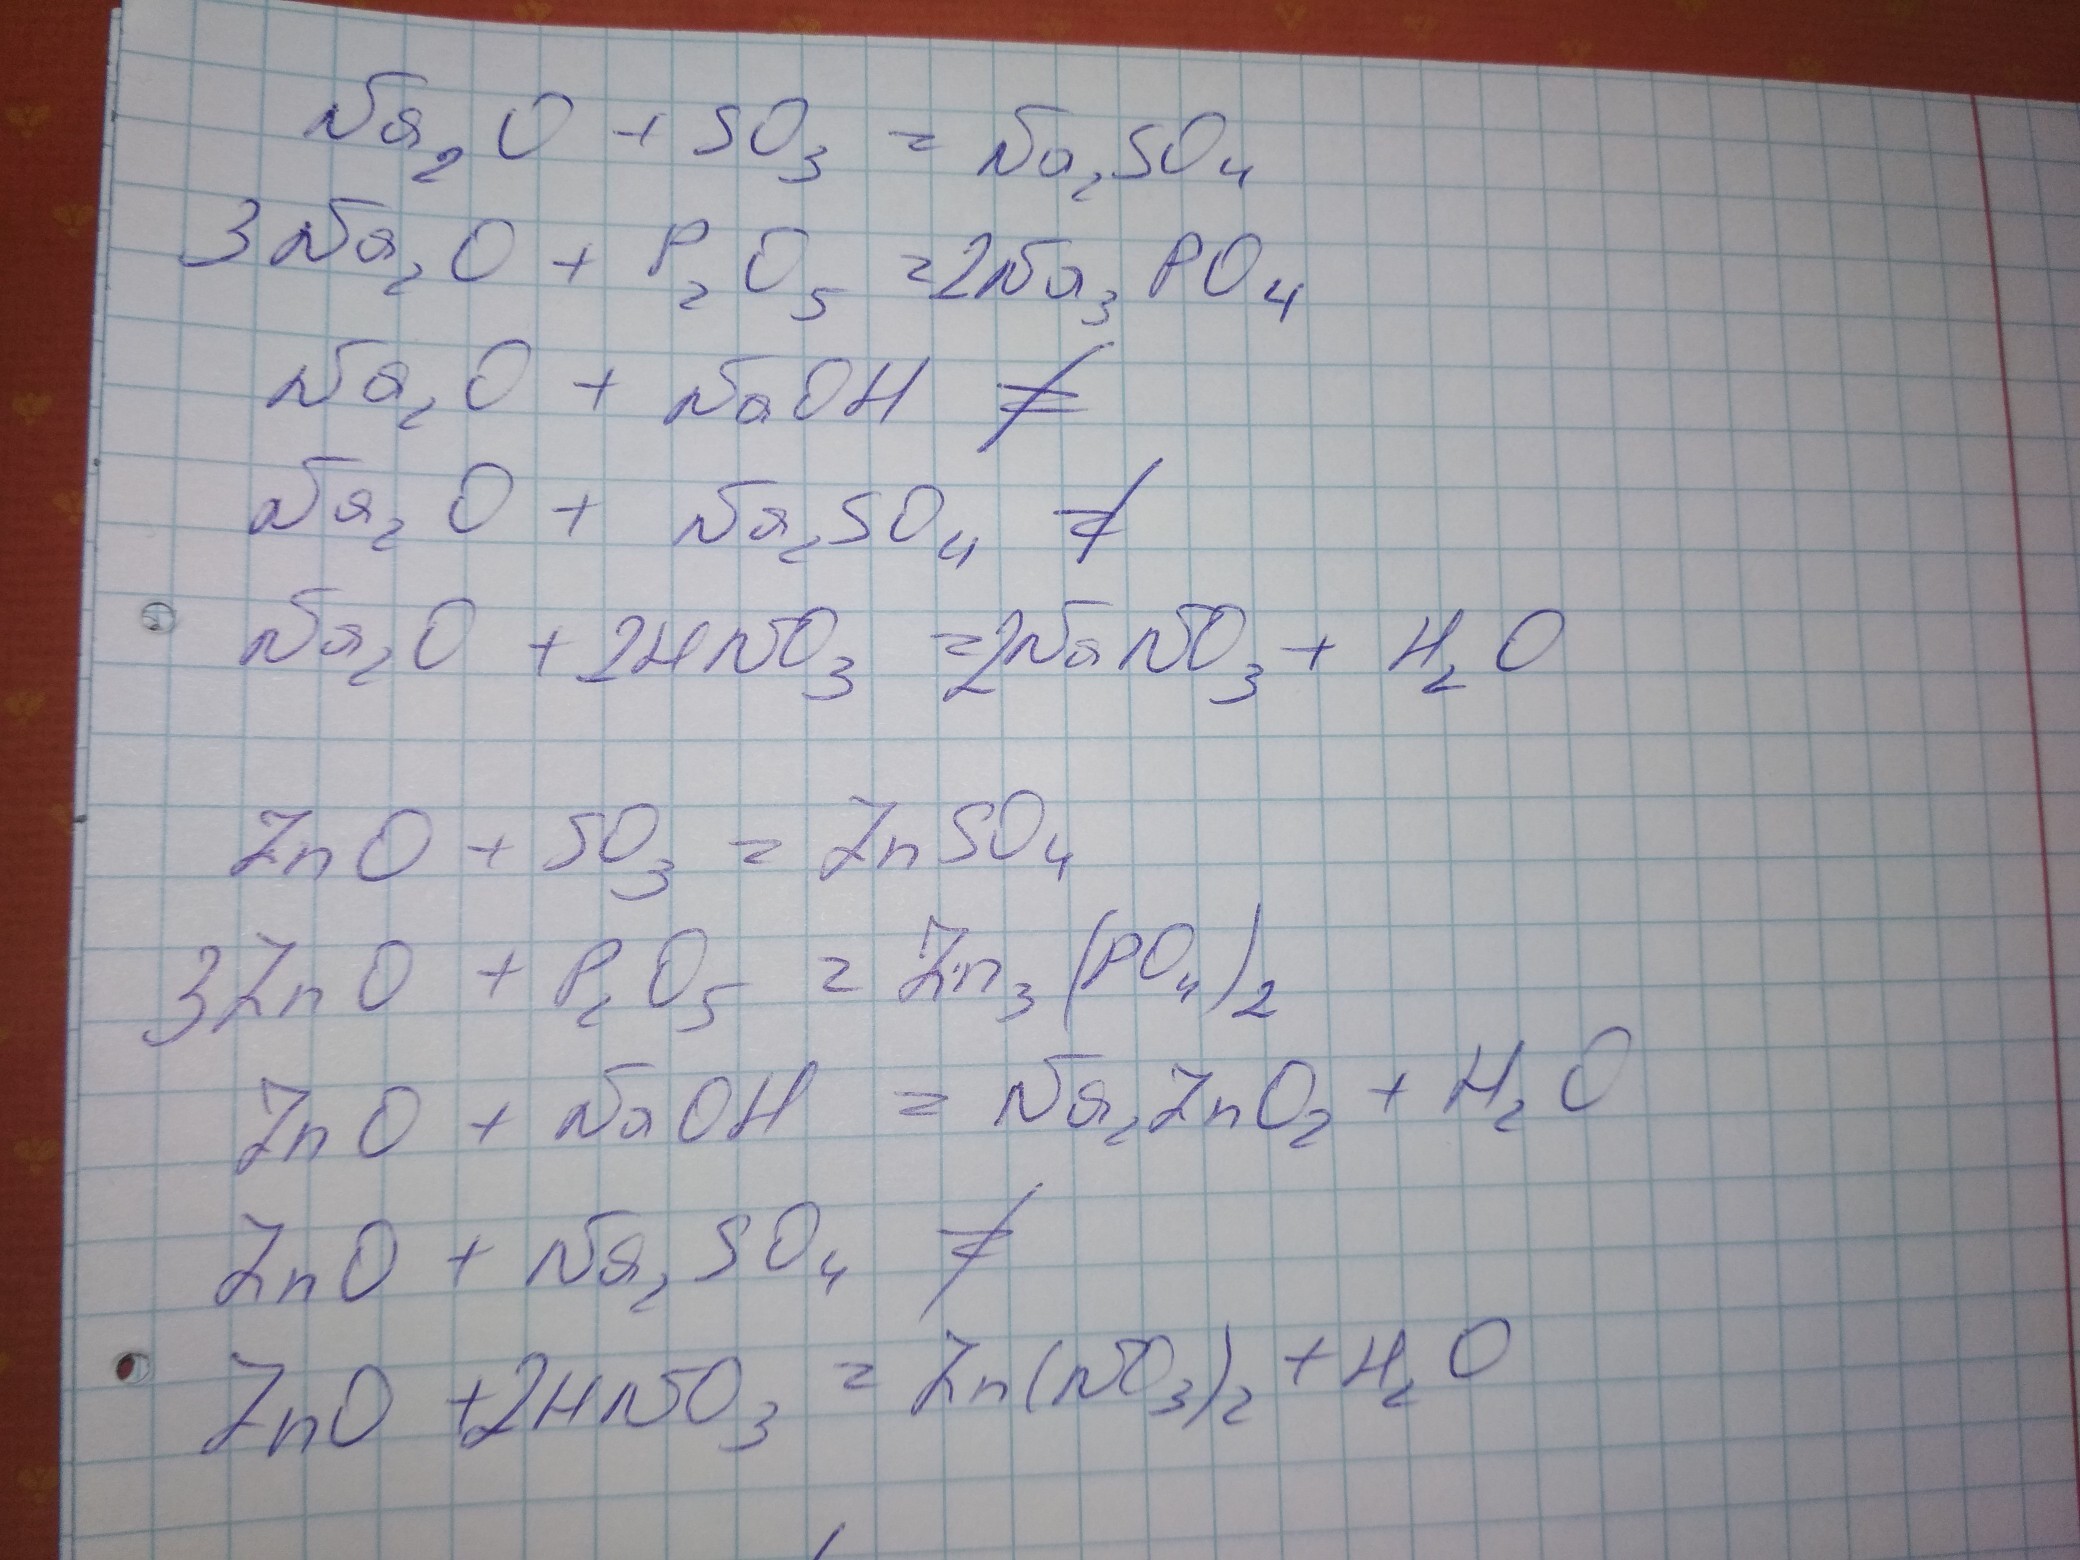 Na₂O + SO₃ = Na₂SO₄
3Na₂O + P₂O₅ = 2Na₃PO₄
Na₂O + NaOH ≠
Na₂O + Na₂SO₄ ≠
Na₂O + 2HNO₃ = 2NaNO₃ + H₂O
ZnO + SO₃ = ZnSO₄
3ZnO + P₂O₅ = Zn₃(PO₄)₂
ZnO + NaOH = Na₂ZnO₂ + H₂O
ZnO + Na₂SO₄ ≠
ZnO + 2HNO₃ = Zn(NO₃)₂ + H₂O